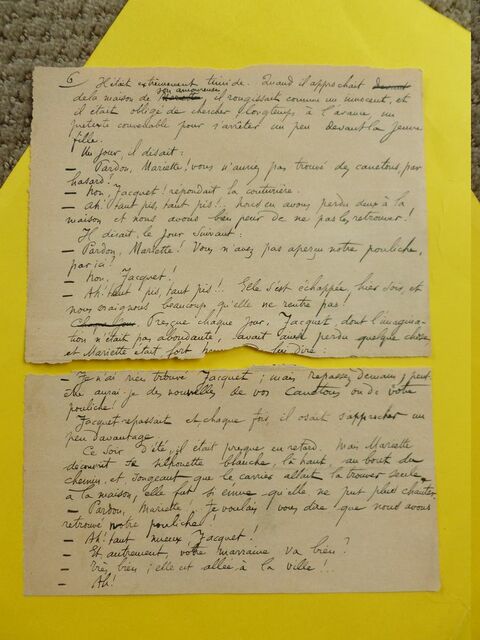 6 Il était extrêmement timide. Quand il approchait devant
de la maison de son amoureuse Mariette, il rougissait comme un innocent, et
il était obligé de chercher longtemps à l'avance un
prétexte convenable pour s'arrêter un peu devant la jeune
fille.
Un jour, il disait :
— Pardon, Mariette ! vous n'auriez pas trouvé des canetons, par
hasard ?
— Non, Jacquet ! répondait la couturière.
— Ah ! tant pis, tant pis !.. nous en avons perdu deux à la
maison et nous avons bien peur de ne pas les retrouver !
Il disait, le jour suivant :
— Pardon, Mariette ! Vous n'avez pas aperçu notre pouliche,
par ici ?
— Non, Jacquet !
— Ah ! tant pis, tant pis !.. Elle s'est échappée, hier soir, et
nous craignons beaucoup qu'elle ne rentre pas !
Chaque jour, Presque chaque jour, Jacquet, dont l'imagina-
tion n'était pas abondante, avait ainsi perdu quelque chose
et Mariette était fort lui dire :
— Je n'ai rien trouvé Jacquet ; mais repassez demain ; peut-
être aurai-je des nouvelles de vos canetons ou de votre
pouliche !
Jacquet repassait et chaque fois, il osait s'approcher un
peu davantage.
Ce soir d'été, il était presque en retard. Mais Mariette
découvrit sa silhouette blanche, là-haut, au bout du
chemin, et songeant que le carrier allait la trouver seule,
à la maison, elle fut si émue qu'elle ne put plus chanter.
— Pardon, Mariette, Je voulais vous dire que nous avons
retrouvé notre pouliche !
— Ah ! tant mieux, Jacquet !
— Et autrement, votre marraine va bien ?
— Très bien ; elle est allée à la ville !..
— Ah !